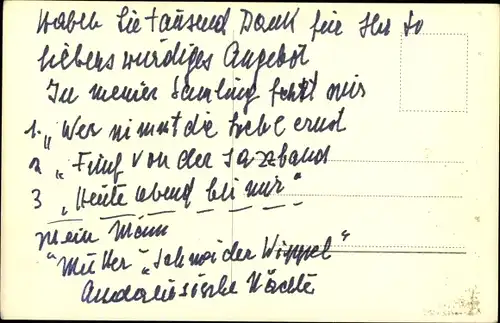 Haben Sie tausend Dank für Ihr so
liebenswürdiges Angebot
In meiner Samlung fehlt mir
1. „Wer nimmt die Liebe ernst
2 „Fünf von der Jazzband
3 „Heute abend bei mir“
Mein Mann
"Mutter - „Schneider Wippel“
Andalusische Nächte